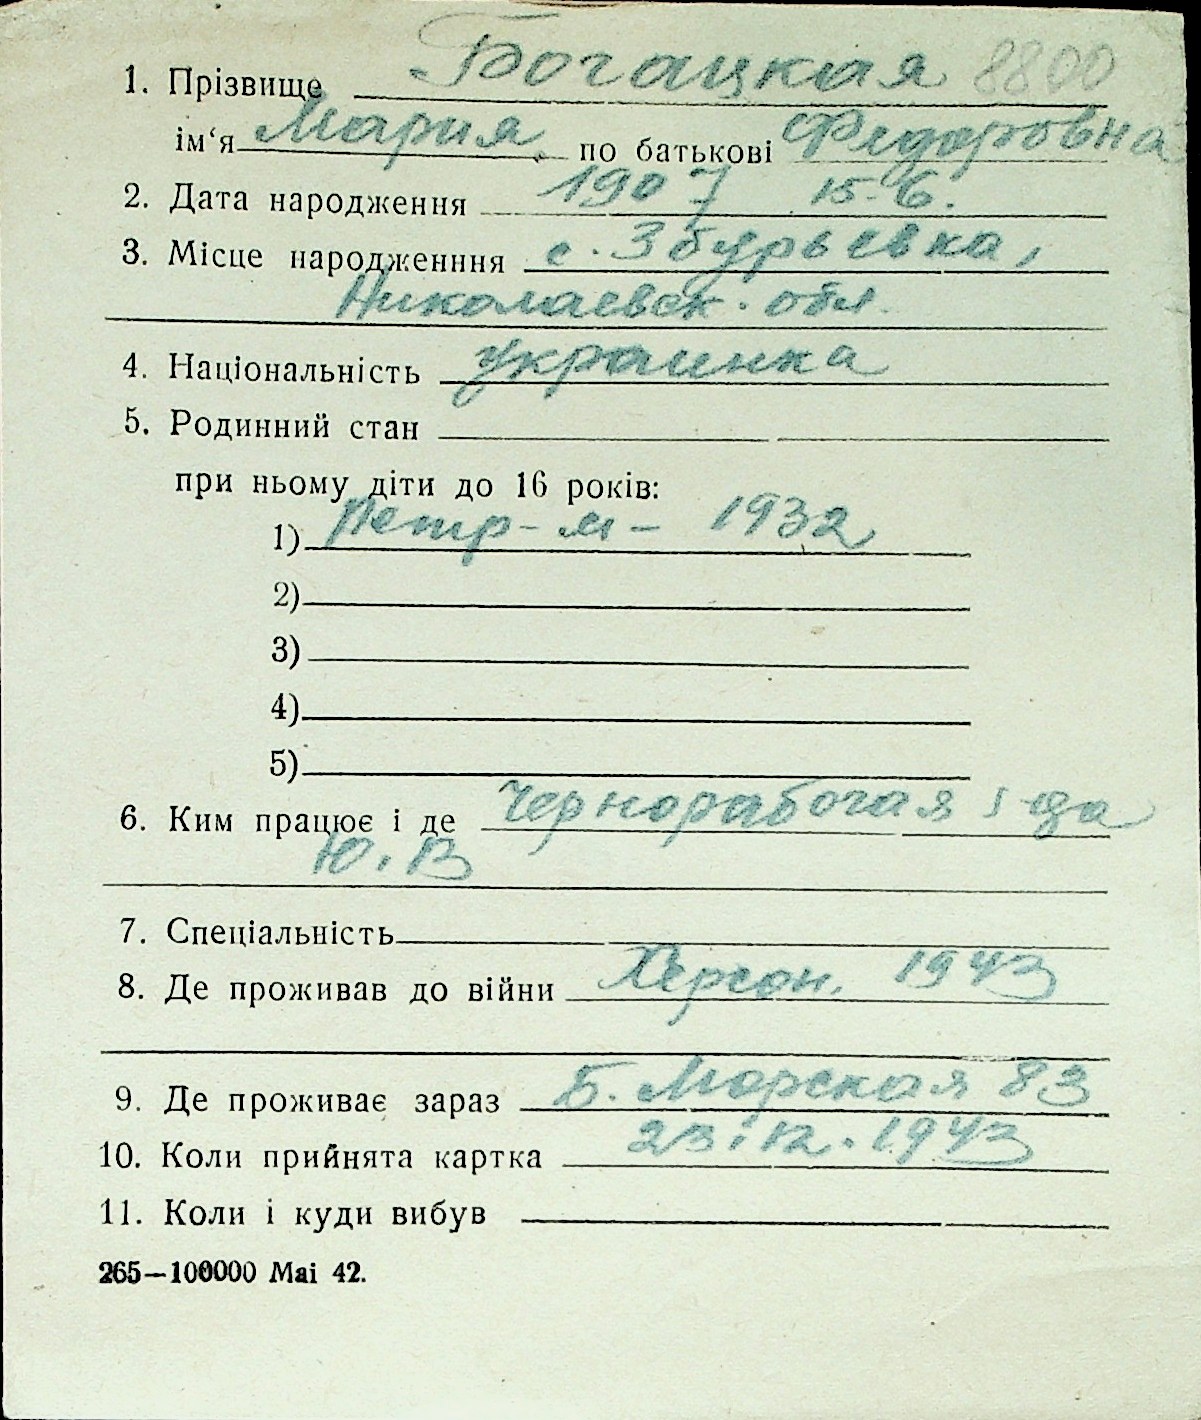 1. Прізвище Богацкая 8800
ім‘я Мария. по батькові Федоровна
2. Дата народження 1907 15-6.
3. Місце народженння с. Збурьевка,
Николаевск. обл.
4. Національність украинка
5. Родинний стан
при ньому діти до 16 років:
1) Петр - м - 1932
2)
3)
4)
5)
6. Ким працює і де Чернорабочая
Ю. В
7. Спеціальність
8. Де проживав до війни Херсон. 1943
9. Де проживає зараз Б. Морская 83
10. Коли прийнята картка 23.12.1943
11. Коли і куди вибув
265—100000 Mai 42.